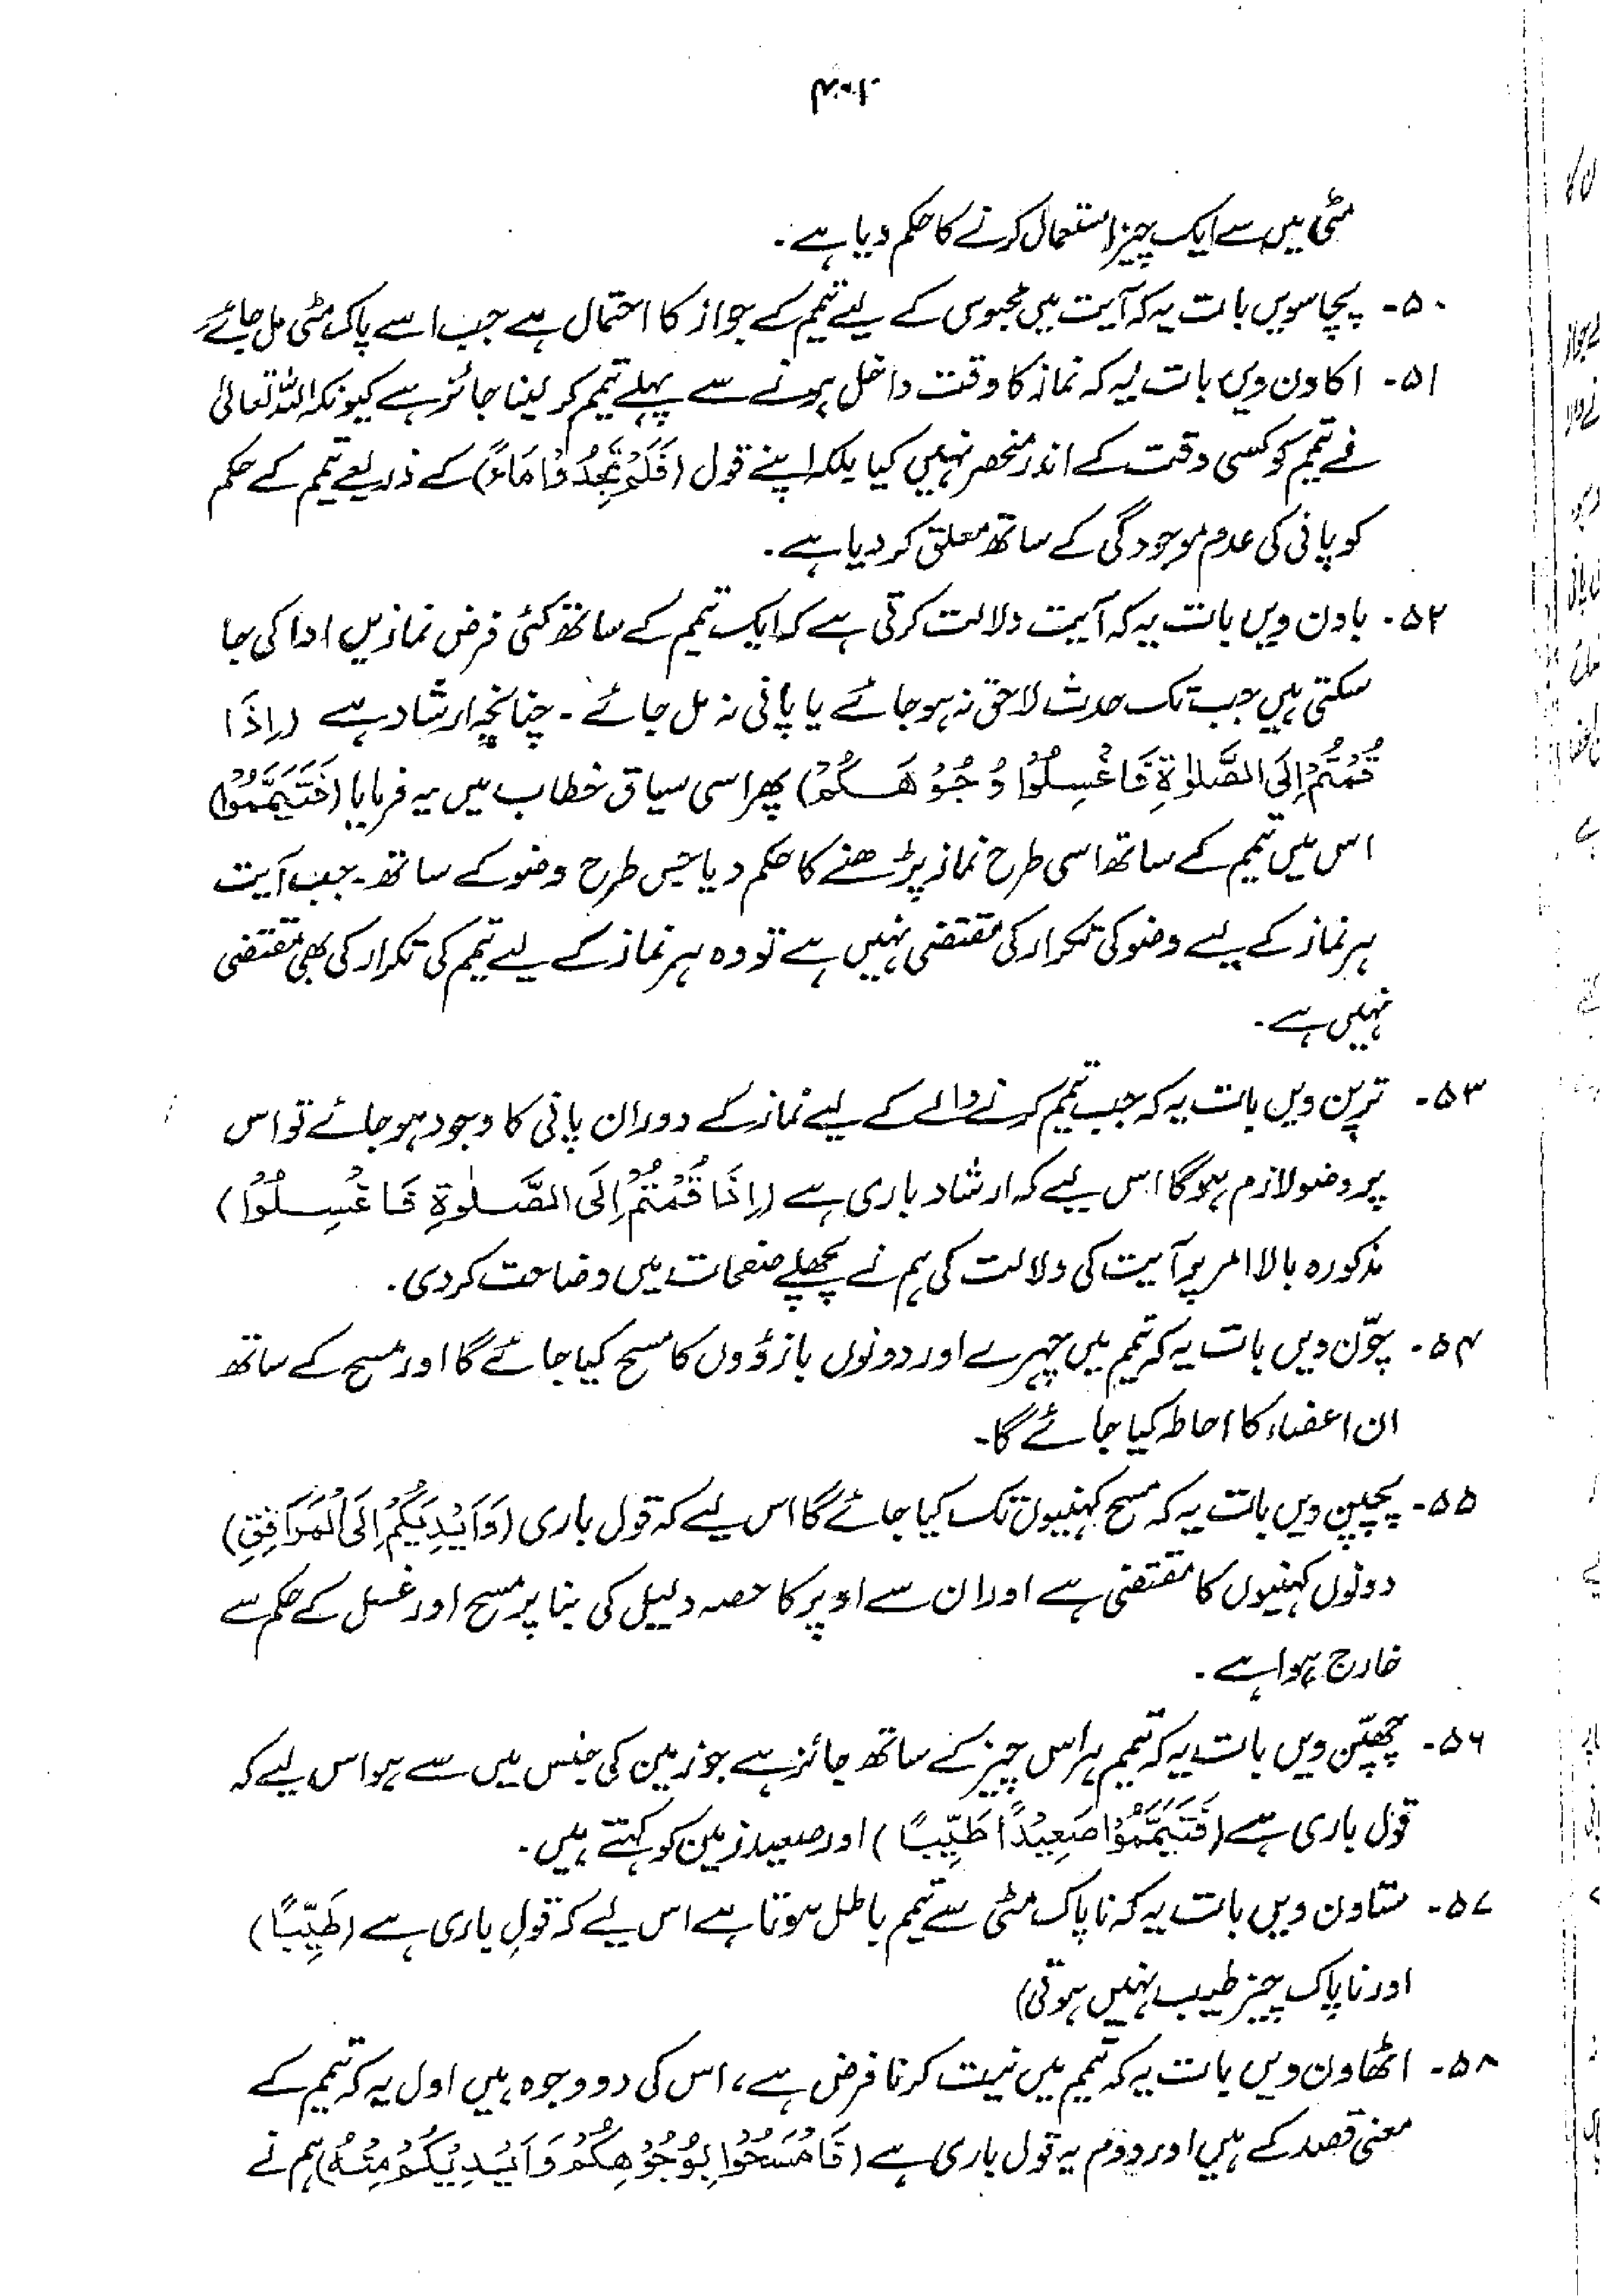 مٹی میں سے ایک چیز استعمال کرنے کا حکم دیا ہے۔
۵۰- پچاسویں بات یہ کہ آیت میں محبوس کے لیے تیمم کے جواز کا احتمال ہے جب اسے پاک مٹی مل جائے
۵۱- اکاون ویں بات یہ کہ نماز کا وقت داخل ہونے سے پہلے تیمم کر لینا جائز ہے کیونکہ اللہ تعالیٰ
نے تیمم کو کسی وقت کے اندر منحصر نہیں کیا بلکہ اپنے قول (فَلَمْ تَجِدُوْا مَاءً) کے ذریعے تیمم کے حکم
کو پانی کی عدم موجودگی کے ساتھ معلق کر دیا ہے۔
۵۲- باون ویں بات یہ کہ آیت دلالت کرتی ہے کہ ایک تیمم کے ساتھ کئی فرض نمازیں ادا کی جا
سکتی ہیں جب تک حدث لاحق نہ ہو جائے یا پانی نہ مل جائے۔ چنانچہ ارشاد ہے (اِذَا
قُمْتُمْ اِلَى الصَّلٰوةِ فَاغْسِلُوْا وُجُوْهَكُمْ) پھر اسی سیاق خطاب میں یہ فرمایا (فَتَيَمَّمُوْا)
اس میں تیمم کے ساتھ اسی طرح نماز پڑھنے کا حکم دیا جس طرح وضو کے ساتھ۔ جب آیت
ہر نماز کے لیے وضو کی تکرار کی مقتضی نہیں ہے تو وہ ہر نماز کے لیے تیمم کی تکرار کی بھی مقتضی
نہیں ہے۔
۵۳- ترپن ویں بات یہ کہ جب تیمم کرنے والے کے لیے نماز کے دوران پانی کا وجود ہو جائے تو اس
پر وضو لازم ہو گا اس لیے کہ ارشاد باری ہے (اِذَا قُمْتُمْ اِلَى الصَّلٰوةِ فَاغْسِلُوْا)
مذکورہ بالا امر پر آیت کی دلالت کی ہم نے پچھلے صفحات میں وضاحت کر دی۔
۵۴- چوّن ویں بات یہ کہ تیمم میں چہرے اور دونوں بازؤوں کا مسح کیا جائے گا اور مسح کے ساتھ
ان اعضاء کا احاطہ کیا جائے گا۔
۵۵- پچپن ویں بات یہ کہ مسح کہنیوں تک کیا جائے گا اس لیے کہ قول باری (وَاَيْدِيَكُمْ اِلَى الْمَرَافِقِ)
دونوں کہنیوں کا مقتضی ہے اور ان سے اوپر کا حصہ دلیل کی بنا پر مسح اور غسل کے حکم سے
خارج ہوا ہے۔
۵۶- چھپّن ویں بات یہ کہ تیمم ہر اس چیز کے ساتھ جائز ہے جو زمین کی جنس میں سے ہو اس لیے کہ
قول باری ہے (فَتَيَمَّمُوْا صَعِيْدًا طَيِّبًا) اور صعید زمین کو کہتے ہیں۔
۵۷- ستاون ویں بات یہ کہ ناپاک مٹی سے تیمم باطل ہوتا ہے اس لیے کہ قولِ باری ہے (طَيِّبًا)
اور ناپاک چیز طیب نہیں ہوتی)
۵۸- اٹھاون ویں بات یہ کہ تیمم میں نیت کرنا فرض ہے، اس کی دو وجوہ ہیں اول یہ کہ تیمم کے
معنی قصد کے ہیں اور دوم یہ قول باری ہے (فَامْسَحُوْا بِوُجُوْهِكُمْ وَاَيْدِيْكُمْ مِنْهُ) ہم نے